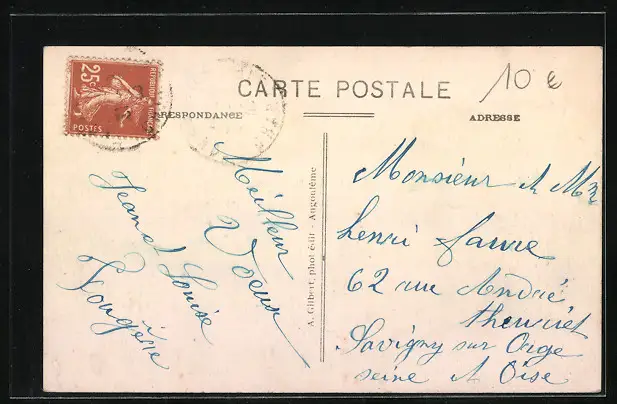 25c
REPUBLIQUE FRANÇAISE
POSTES
CARTE POSTALE
10 €
RESPONDANCE
ADRESSE
Meilleur
Voeux
Jean et Louise
Fougère
A. Gilbert, phot édit - Angoulême
Monsieur et Mm
henri faure
62 rue André
theuriet
Savigny sur Orge
seine et Oise